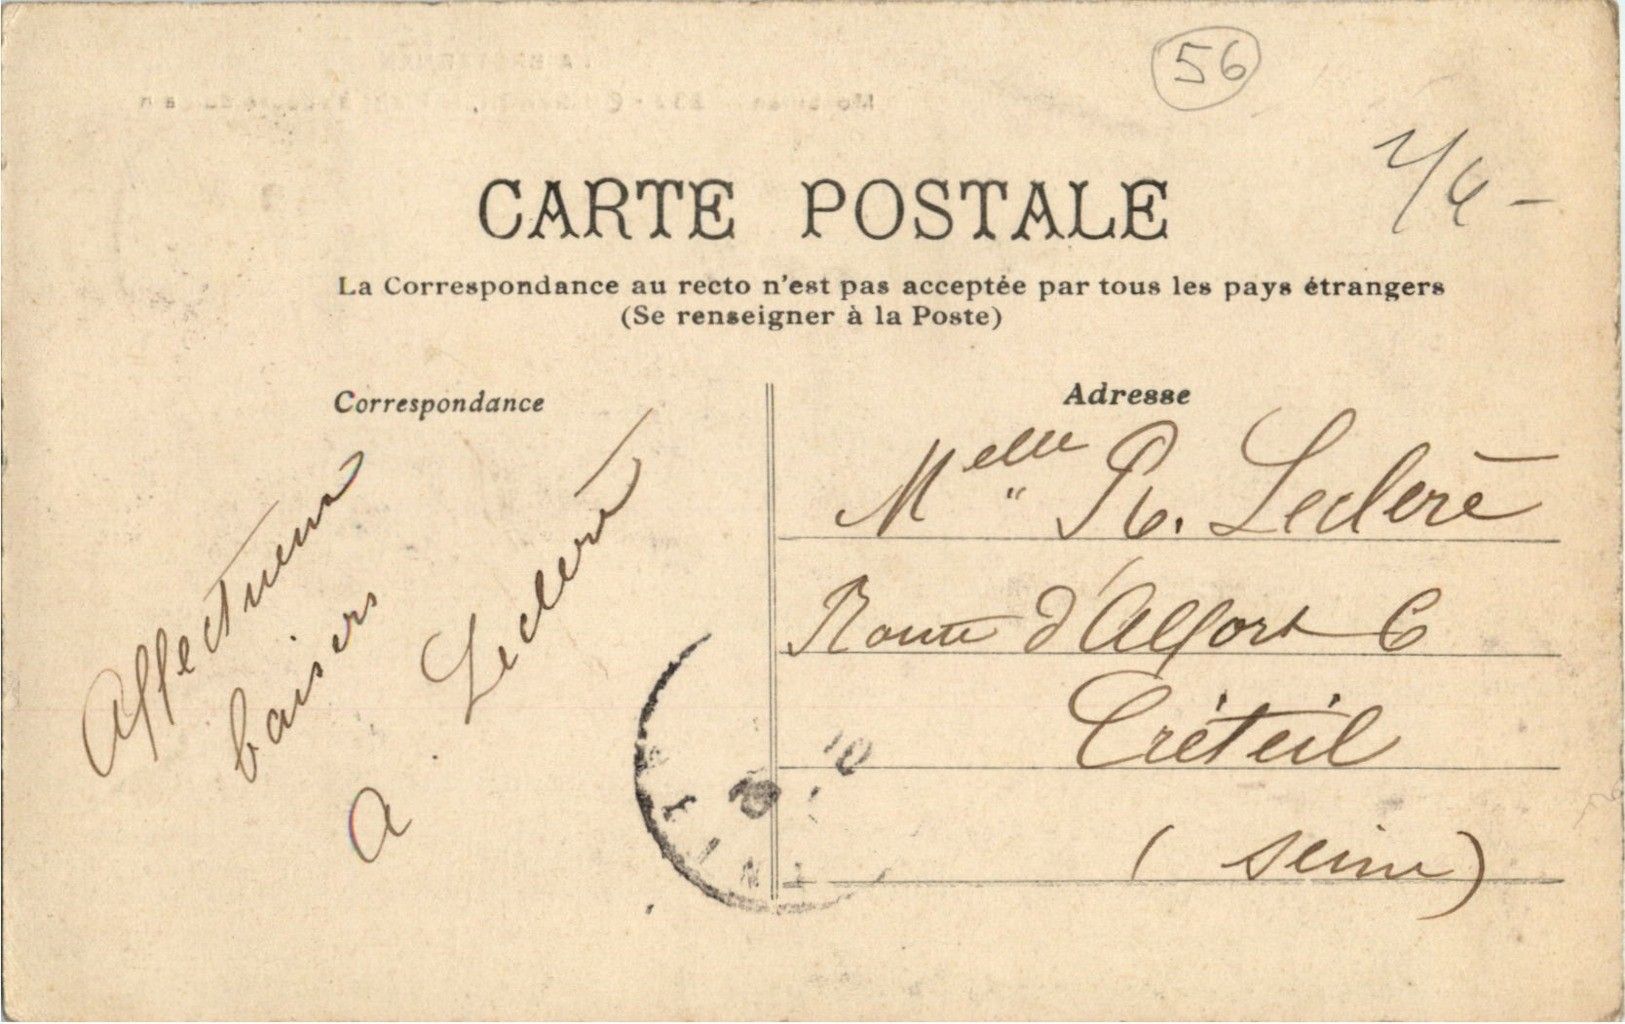 56
CARTE POSTALE
La Correspondance au recto n'est pas acceptée par tous les pays étrangers
(Se renseigner à la Poste)
Correspondance
Affectueux
baisers
A. Leclère
Adresse
Melle R. Leclère
Route d'Alfort 6
Créteil
(Seine)
10